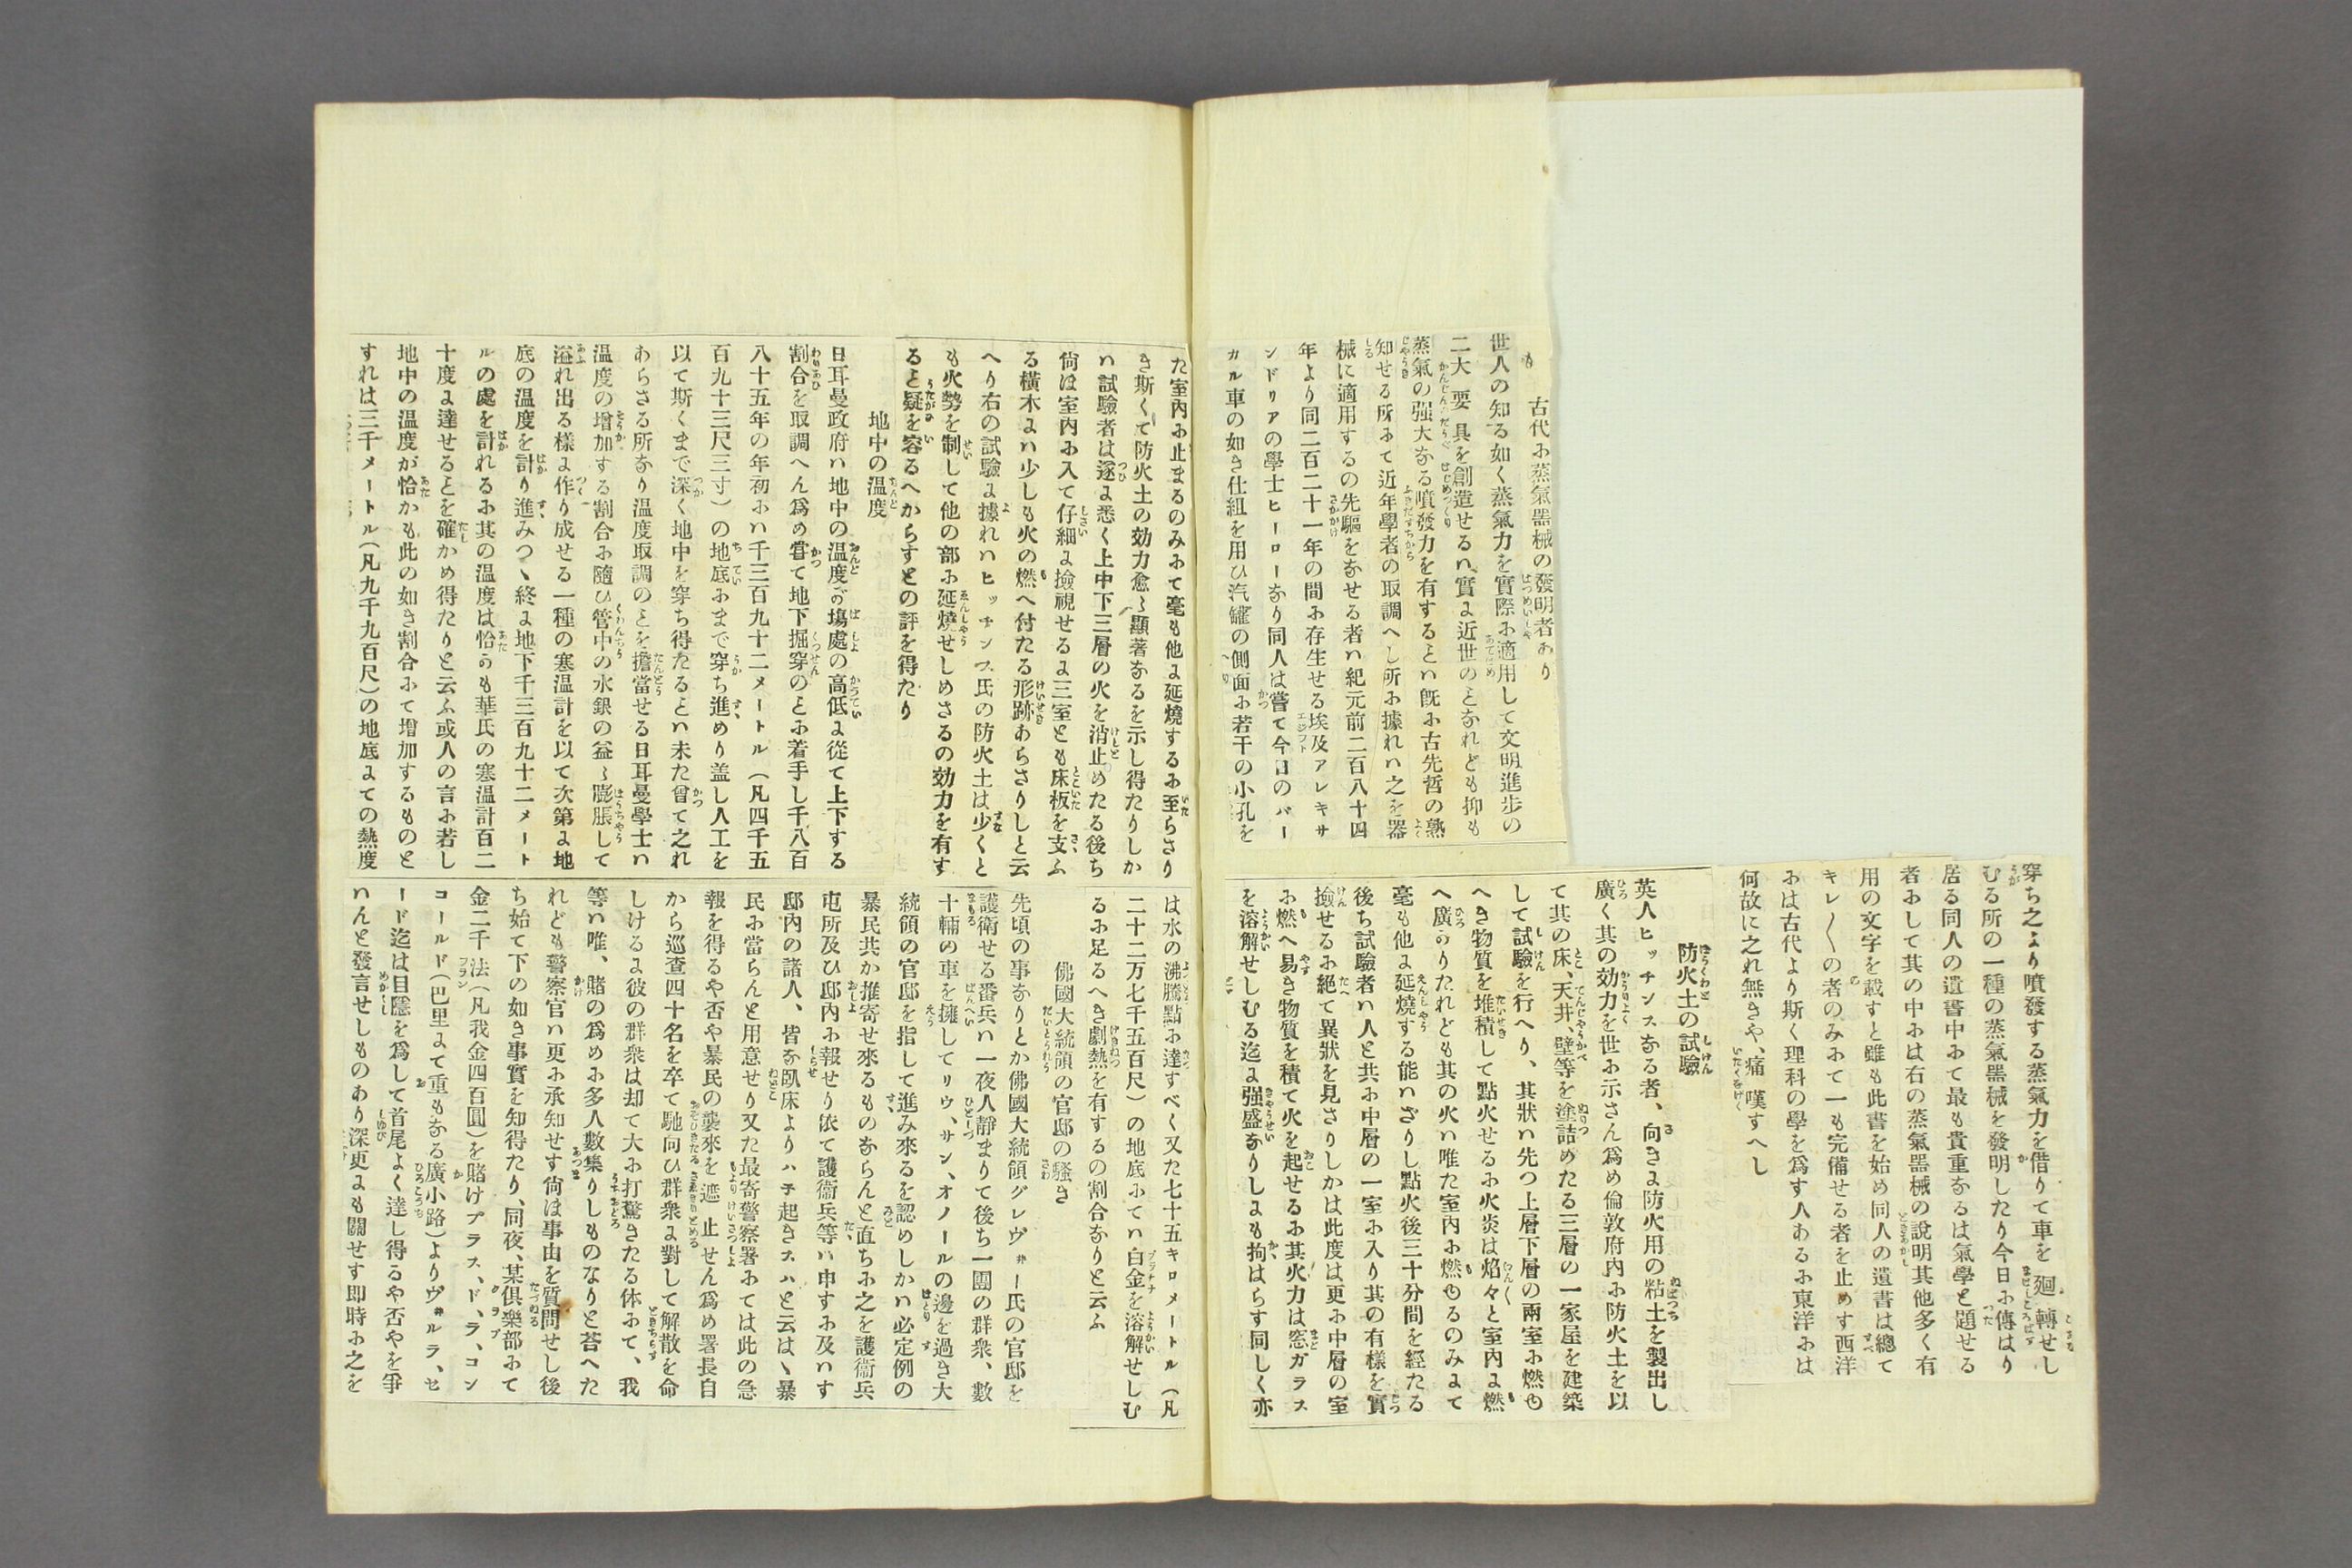 古代に蒸氣器械の發明者あり
世人の知る如く蒸氣力を實際に適用して文明進歩の
二大要具を創造せるハ實に近世のとなれども抑も
蒸氣の强大なる噴發力を有するとハ既に古先哲の熟
知せる所にて近年學者の取調へし所に據れハ之を器
械に適用するの先驅をなせる者ハ紀元前二百八十四
年より同二百二十一年の間に存生せる埃及アレキサ
ンドリアの學士ヒーローなり同人は嘗て今日のバー
カル車の如き仕組を用ひ汽罐の側面に若干の小孔を
穿ち之より噴發する蒸氣力を借りて車を廻轉せし
むる所の一種の蒸氣噐械を發明したり今日に傳はり
居る同人の遺書中にて最も貴重なるは氣學と題せる
者にして其の中には右の蒸氣噐械の說明其他多く有
用の文字を載すと雖も此書を始め同人の遺書は總て
キレ〱の者のみにて一も完備せる者を止めす西洋
には古代より斯く理科の學を爲す人あるに東洋には
何故に之れ無きや、痛嘆すへし
防火土の試驗
英人ヒッチンスなる者、向きに防火用の粘土を製出し
廣く其の効力を世に示さん爲め倫敦府內に防火土を以
て其の床、天井、壁等を塗詰めたる三層の一家屋を建築
して試驗を行へり、其狀ハ先つ上層下層の兩室に燃ゆ
へき物質を堆積して點火せるに火炎は焰々と室內に燃
へ廣かりたれども其の火ハ唯た室內に燃ゆるのみにて
毫も他に延燒する能ハざりし點火後三十分間を經たる
後ち試驗者ハ人と共に中層の一室に入り其の有樣を實
撿せるに絕て異狀を見さりしかは此度は更に中層の室
に燃へ易き物質を積て火を起せるに其火力は窓ガラス
を溶解せしむる迄に强盛なりしにも拘はらす同しく亦
た室內に止まるのみにて毫も他に延燒するに至らさり
き斯くて防火土の効力愈〻顯著なるを示し得たりしか
ハ試驗者は遂に悉く上中下三層の火を消止めたる後ち
尙ほ室內に入て仔細に撿視せるに三室とも床板を支ふ
る橫木にハ少しも火の燃へ付たる形跡あらさりしと云
へり右の試驗に據れハヒッチンス氏の防火土は少くと
も火勢を制して他の部に延燒せしめさるの効力を有す
ると疑を容るへからすとの評を得たり
地中の温度
日耳曼政府ハ地中の温度が塲處の高低に從て上下する
割合を取調へん爲め甞て地下掘穿のとに着手し千八百
八十五年の年初にハ千三百九十二メートル（凡四千五
百九十三尺三寸）の地底にまで穿ち進めり盖し人工を
以て斯くまで深く地中を穿ち得たるとハ未た曾て之れ
あらさる所なり温度取調のとを擔當せる日耳曼學士ハ
温度の增加する割合に隨ひ管中の水銀の益〻膨脹して
溢れ出る樣に作り成せる一種の寒温計を以て次第に地
底の温度を計り進みつヽ終に地下千三百九十二メート
ルの處を計れるに其の温度は恰かも華氏の寒温計百二
十度に達せるとを確かめ得たりと云ふ或人の言に若し
地中の温度が恰かも此の如き割合にて增加するものと
すれは三千メートル（凡九千九百尺）の地底にての熱度
は水の沸騰點に達すべく又た七十五キロメートル（凡
二十二万七千五百尺）の地底にてハ白金を溶解せしむ
るに足るへき劇熱を有するの割合なりと云ふ
佛國大統領の官邸の騷き
先頃の事なりとか佛國大統領グレヴ井ー氏の官邸を
護衛せる番兵ハ一夜人靜まりて後ち一團の群衆、數
十輛の車を擁してリウ、サン、オノールの邊を過き大
統領の官邸を指して進み來るを認めしかハ必定例の
暴民共か推寄せ來るものならんと直ちに之を護衞兵
屯所及ひ邸內に報せり依て護衞兵等ハ申すに及ハす
邸內の諸人、皆な臥床よりハチ起きスハと云はヽ暴
民に當らんと用意せり又た最寄警察署にては此の急
報を得るや否や暴民の襲來を遮止せん爲め署長自
から巡查四十名を卒て馳向ひ群衆に對して解散を命
しけるに彼の群衆は却て大に打驚きたる体にて、我
等ハ唯、賭の爲めに多人數集りしものなりと荅へた
れども警察官ハ更に承知せす尙ほ事由を質問せし後
ち始て下の如き事實を知得たり、同夜、某俱樂部にて
金二千法（凡我金四百圓）を賭けプラス、ド、ラ、コン
コールド（巴里にて重もなる廣小路）よりヴ井ルラ、セ
ード迄は目隱を爲して首尾よく達し得るや否やを爭
ハんと發言せしものあり深更にも關せす即時に之を